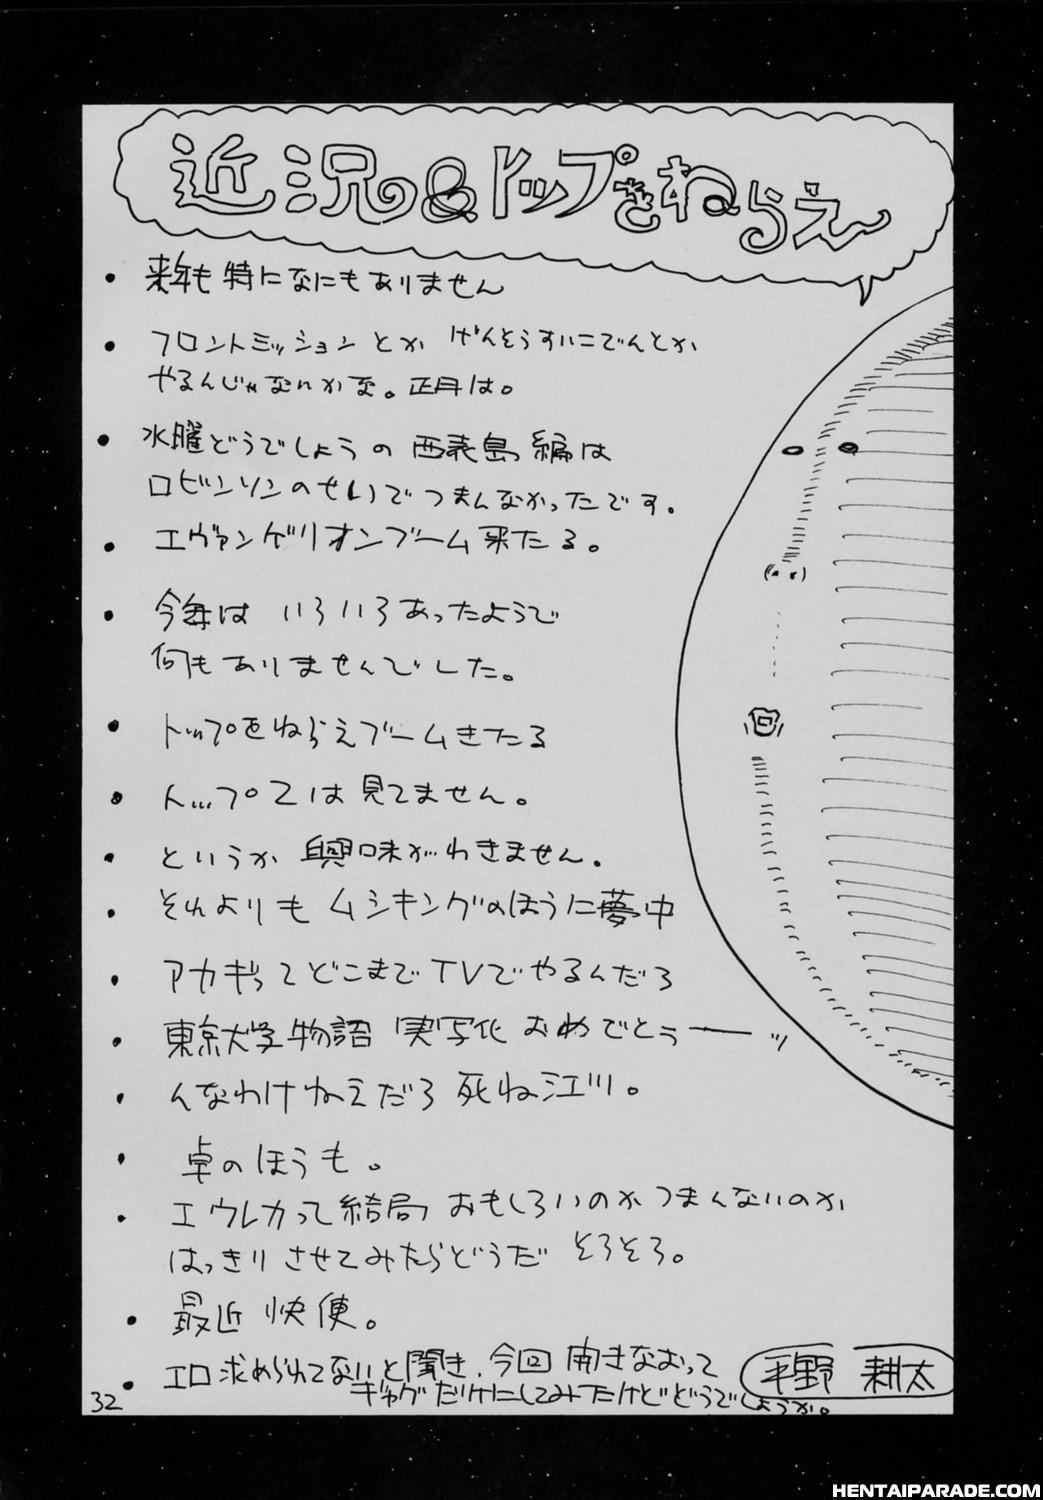 近況の&トップをねらえ〜
・来年も特になにもありません
・フロントミッションとか げんそうすいこでんとか
やるんじゃないかな。正月は。
・水曜どうでしょうの 西表島編は
ロビンソンのせいでつまんなかったです。
・エヴァンゲリオンブーム来たる。
・今年は いろいろあったようで
何もありませんでした。
・トップをねらえブームきたる
・トップ2は見てません。
・というか 興味がわきません。
・それよりも ムシキングのほうに夢中
・アカギってどこまでTVでやるんだろ
・東京大学物語 実写化 おめでとぅーーッ
・んなわけねえだろ 死ね江川。
・卓のほうも。
・エウレカって結局 おもしろいのかつまんないのか
はっきりさせてみたらどうだ そろそろ。
・最近 快便。
・エロ求められてないと聞き、今回 開きなおって
ギャグだけにしてみたけどどうでしょうか。
平野 耕太
32
HENTAIPARADE.COM